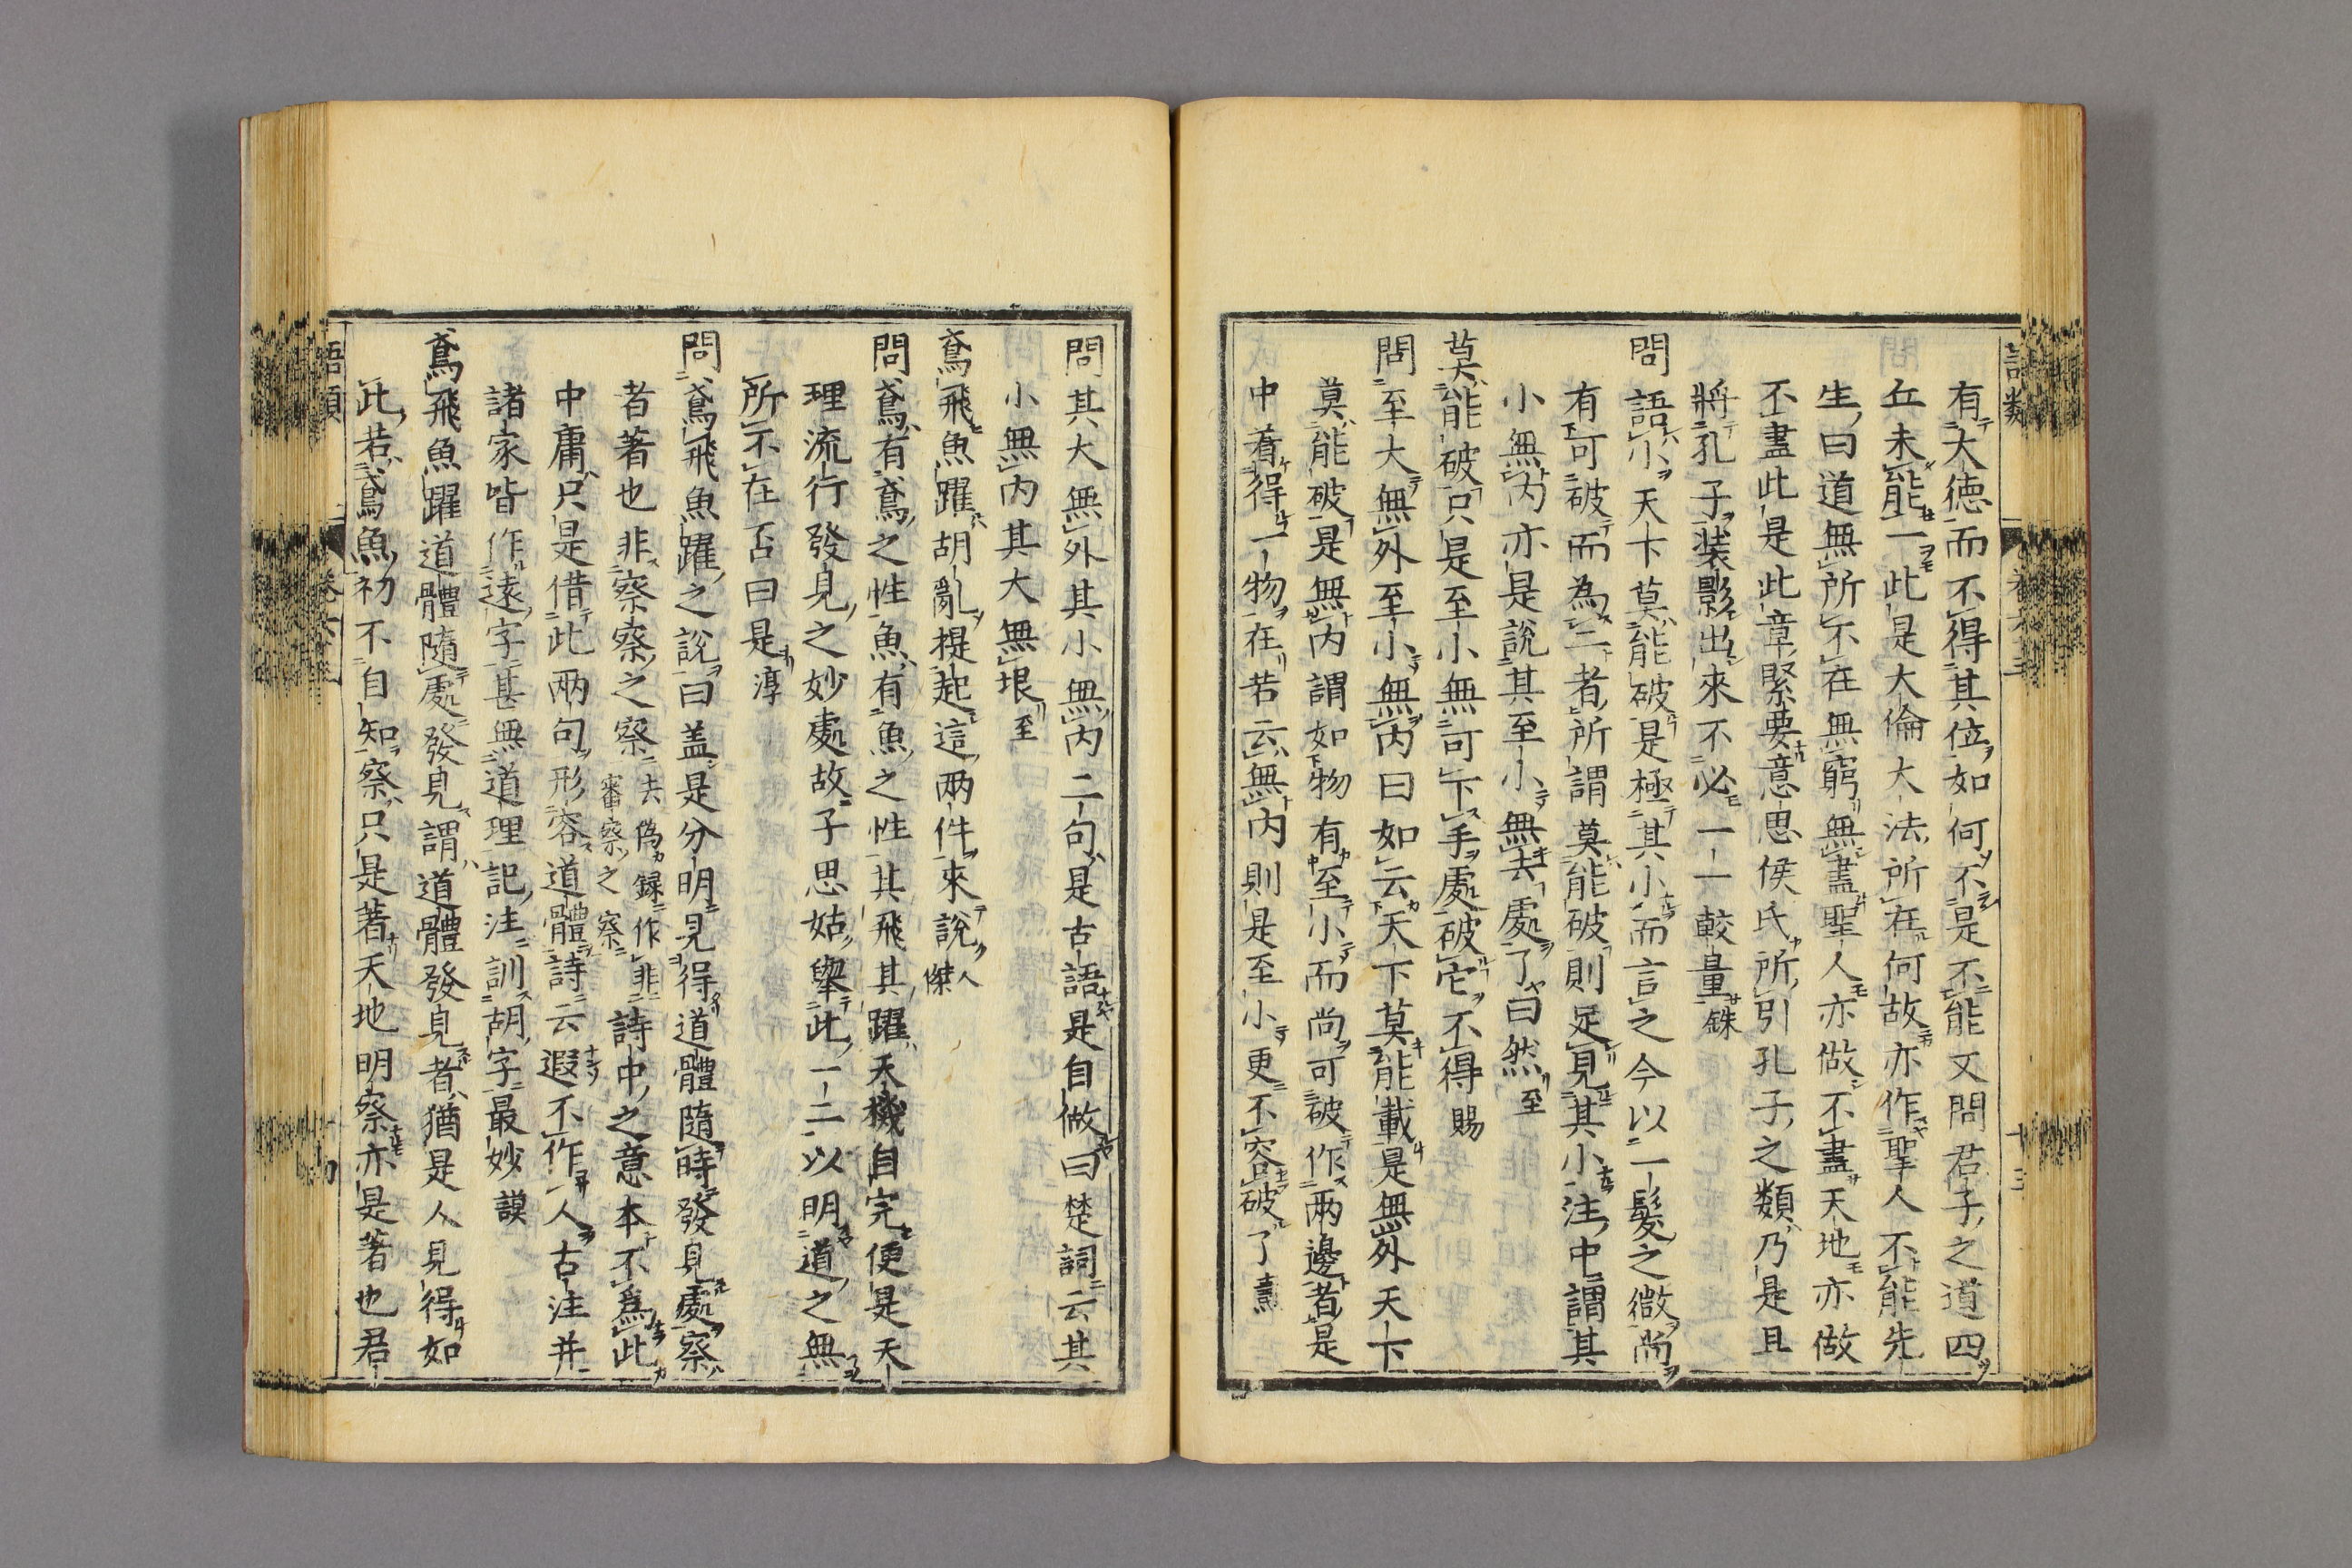 有大徳而不得其位如何不是不能又問君子之道四
丘未能一此是大倫大法所在何故亦作聖人不能先
生曰道無所不在無窮無盡聖人亦做不盡天地亦做
不盡此是此章緊要意思侯氏所引孔子之類乃是且
將孔子裝影出來不必一一較量銖
問語小天下莫能破是極其小而言之今以一髮之微尚
有可破而為二者所謂莫能破則足見其小注中謂其
小無内亦是説其至小無去處了曰然至
莫能破只是至小無可下手處破它不得賜
問至大無外至小無内曰如云天下莫能載是無外天下
莫能破是無内謂如物有至小而尚可破作兩邊者是
中着得一物在若云無内則是至小更不容破了壽
問其大無外其小無内二句是古語是自做曰楚詞云其
小無内其大無垠至
鳶飛魚躍胡亂提起這兩件來説人傑
問鳶有鳶之性魚有魚之性其飛其躍天機自完便是天
理流行發見之妙處故子思姑舉此一二以明道之無
所不在否曰是淳
問鳶飛魚躍之説曰盖是分明見得道體隨時發見處察
者著也非察察之察去偽録作非審察之察詩中之意本不為此
中庸只是借此兩句形容道體詩云遐不作人古注并
諸家皆作遠字甚無道理記注訓胡字最妙謨
鳶飛魚躍道體隨處發見謂道體發見者猶是人見得如
此若鳶魚初不自知察只是著天地明察亦是著也君
語類
卷六十三
十三
語類
卷六十三